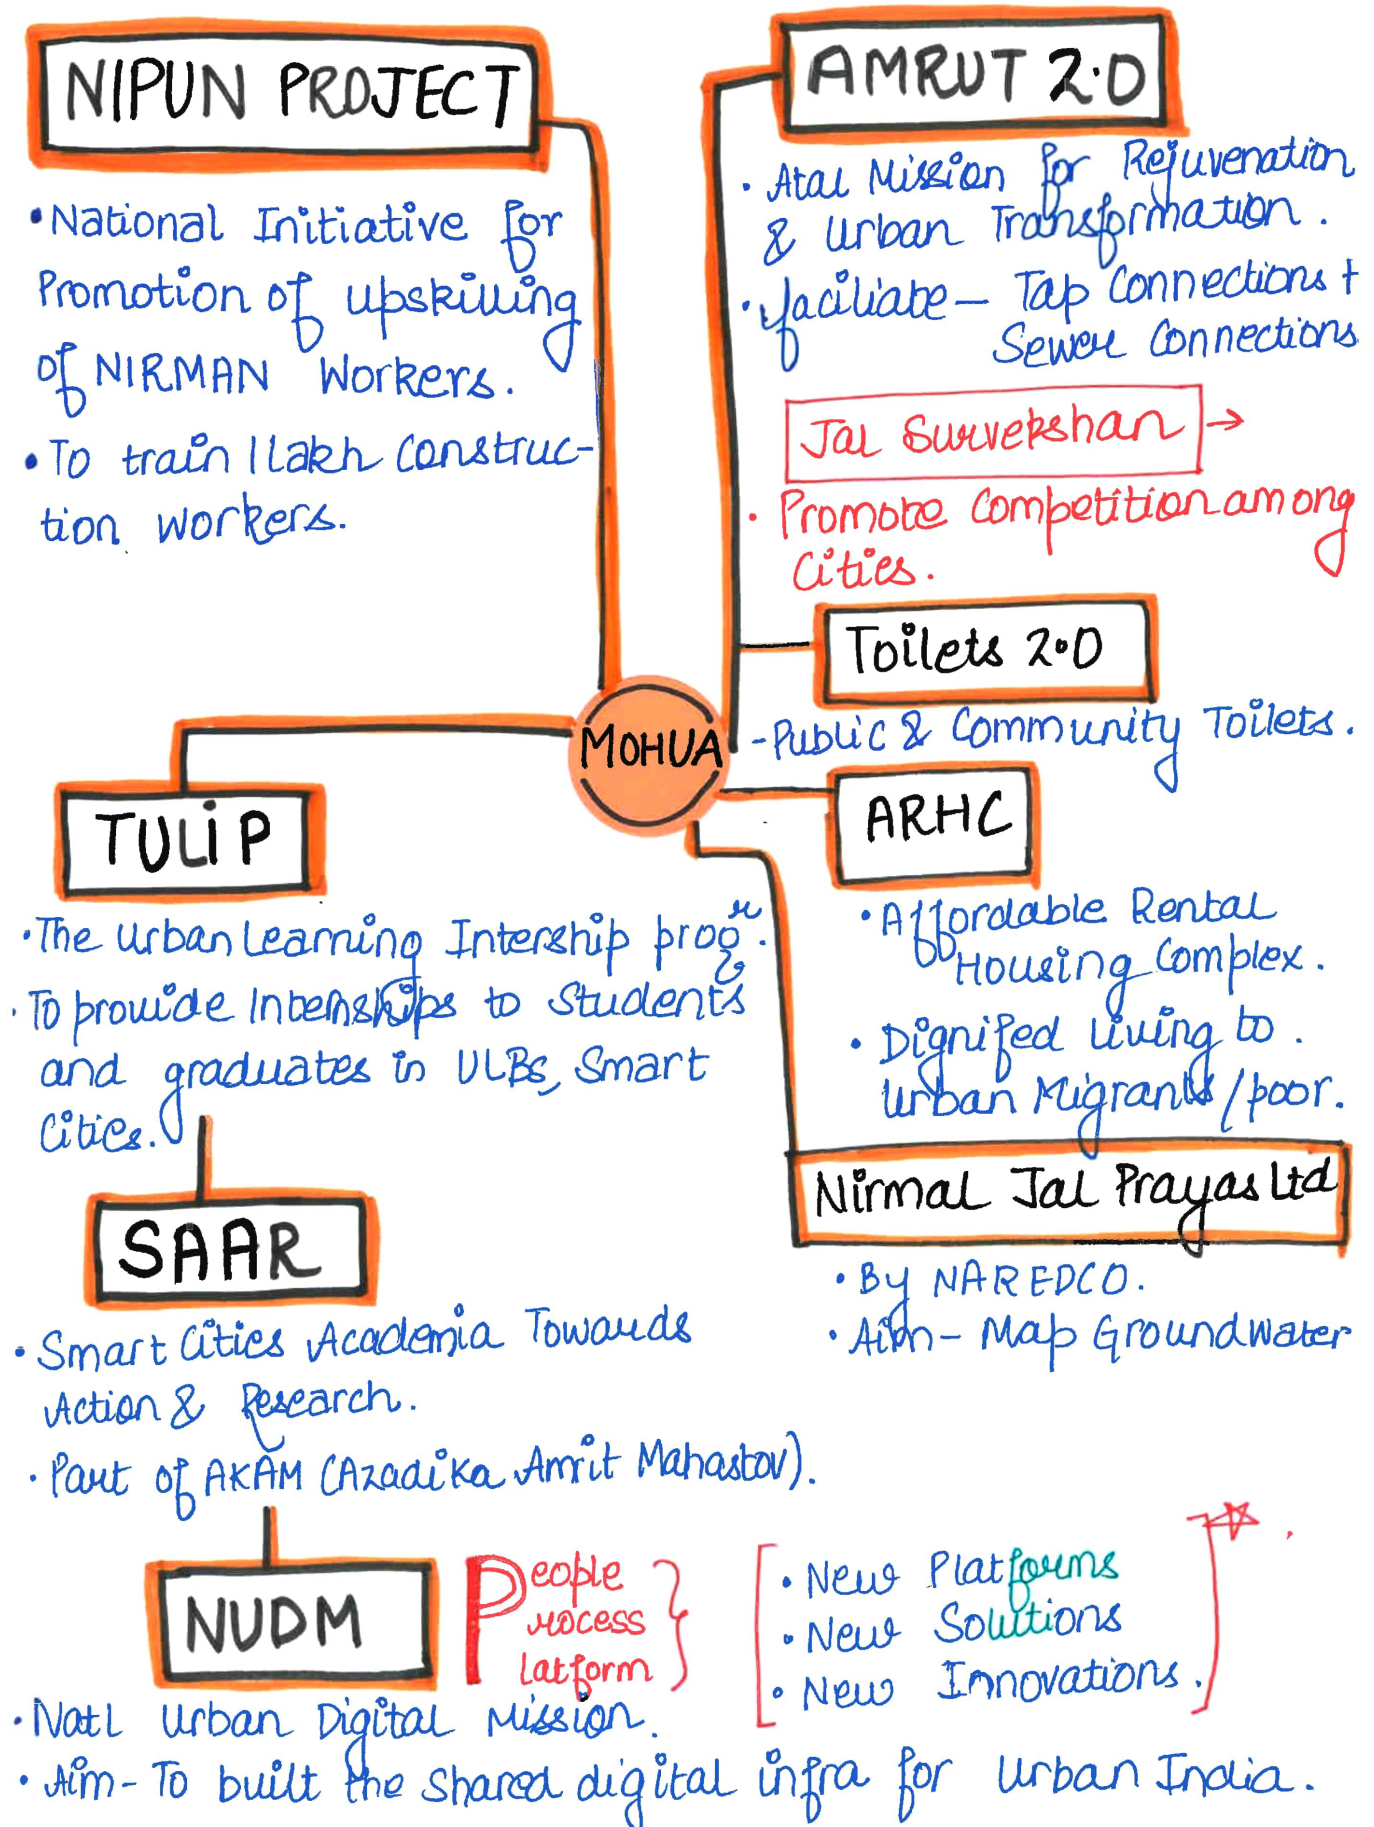 NIPUN PROJECT
• National Initiative for
Promotion of upskilling
of NIRMAN Workers.
• To train 1 lakh Construc-
tion workers.
AMRUT 2.0
• Atal Mission for Rejuvenation
& Urban Transformation.
• faciliate – Tap Connections +
Sewer Connections
Jal Survekshan →
• Promote Competition among
Cities.
Toilets 2.0
- Public & Community Toilets.
MOHUA
ARHC
• Affordable Rental
Housing Complex.
• Dignifed living to.
Urban Migrants/poor.
TULiP
• The Urban Learning Intership progr.
• To provide Internships to Students
and graduates in ULBs, Smart
Cities.
Nirmal Jal Prayas Ltd
• By NAREDCO.
• Aim – Map Groundwater
SAAR
• Smart Cities Academia Towards
Action & Research.
• Part of AKAM (Azadika Amrit Mahastov).
NUDM
People
Process
Platform
• New Platforms
• New Solutions
• New Innovations.
• Natl Urban Digital Mission.
• Aim - To built the shared digital infra for Urban India.